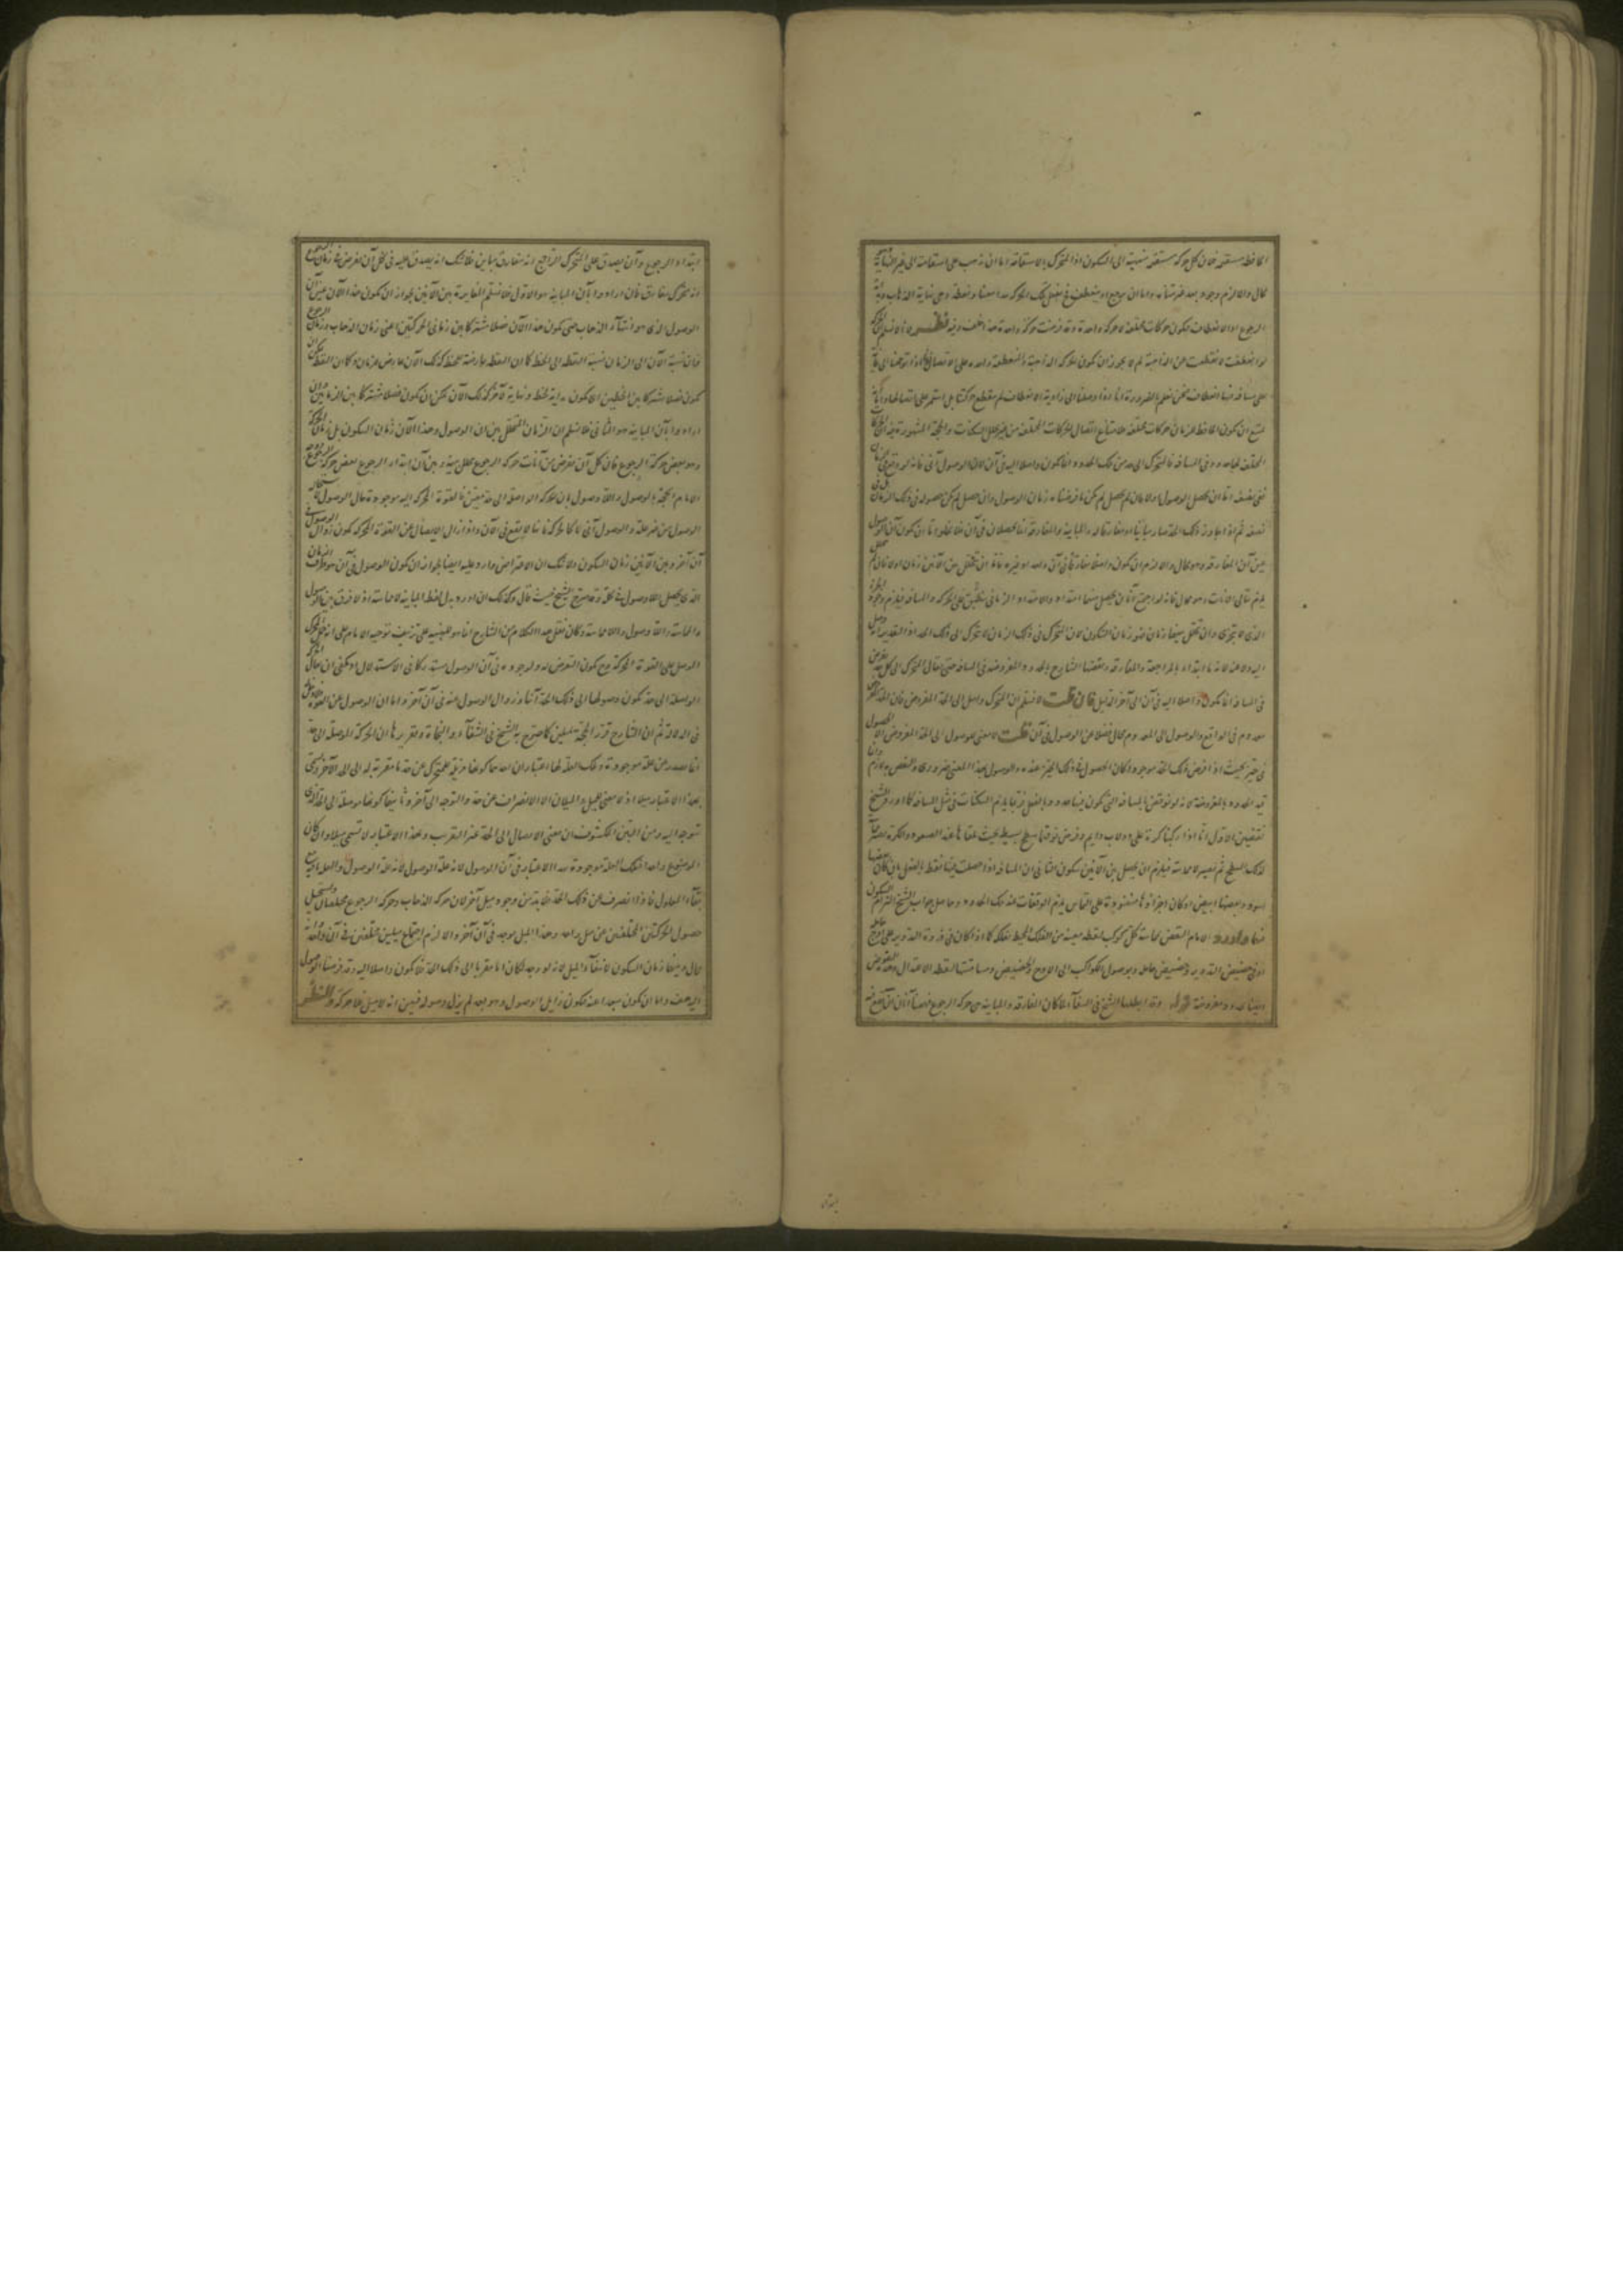 الحافظه مستقيمه فلان كل حركه مستقيمه منتهية الى السكون اذ المتحرك بالاستقامه اما ان يذهب على استقامته الى غير النهاية
محال والا لزم وجود بعد غير متناه واما ان يرجع او ينعطف
الرجوع او الانعطاف فيكون حركات مختلفه لا حركه واحدة وقد فرضت حركة واحدة هذا خلف وفيه نظر لانا لا نسلم
لو انعطفت لانقطعت عن الذاهبة لم لا يجوز ان يكون الحركه الذاهبة والمنعطفة واحده على الاتصال
على مسافه فيها انعطاف نحن نعلم بالضرورة انا اذا وصلنا الى زاوية الانعطاف لم ينقطع حركتنا بل استمر على اتصالها
يمتنع ان يكون الحافظ للزمان حركات مختلفه لامتناع اتصال الحركات المختلفه من غير تخلل السكنات والحجة المشهورة
المختلفه لها حدود فى المسافه فالمتحرك الى حد من تلك الحدود انما يكون واصلا اليه فى آن لان الوصول آنى فانه لو وقع فى زمان
ففى نصفه اما ان يحصل الوصول او لا فان لم يحصل لم يكن ما فرضناه زمان الوصول وان حصل لم يكن حصوله فى ذلك الزمان
نصفه ثم اذا جاوز ذلك الحد صار مباينا او مفارقا له والمباينه والمفارقه انما يحصلان فى آن فلا يخلو اما ان يكون آن الوصول
عين آن المفارقه وهو محال والا لزم ان يكون واصلا مفارقا فى آن واحد او غيره فاما ان يتخلل بين الآنين زمان او لا فان لم
يلزم تتالى الآنات وهو محال فانه لو اجتمع آنان يحصل منهما امتداد والامتداد الزمانى منطبق على الحركه والمسافه فيلزم وجود
الذى لا يتجزى وان تخلل بينهما زمان فهو زمان السكون لان المتحرك فى ذلك الزمان لا يتحرك الى ذلك الحد
اليه ولا عنه لانه ما ابتداء بالمراجعة والمفارقه ونقضها الشارح بالحدود المفروضه فى المسافه حتى يقال المتحرك الى كل حد يفرض
فى المسافه انما يكون واصلا اليه فى آن الى آخر الدليل فان قلت لا نسلم ان المتحرك واصل الى الحد المفروض فان الحد
معدوم فى الواقع والوصول الى المعدوم محال فضلا عن الوصول فى آن قلت لا معنى للوصول الى الحد المفروض الا الحصول
فى حيز بحيث اذا فرض ذلك الحد موجودا كان الحصول فى ذلك الحيز عنده والوصول بهذا المعنى ضرورى
قيد الحدود بالمفروضة لانه لو نوقض بالمسافه التى يكون فيها حدود بالفعل فربما يلتزم السكنات فى مثل المسافه كما اورد الشيخ
نقضين الاول انا اذا ركبنا كرة على دولاب دايم وفرض فوقها سطح بسيط بحيث تلقاها عند الصعود والكرة يصير
لذلك السطح ثم يصير لا مماسة فيلزم ان يحصل بين الآنين سكون الثانى ان المسافه اذا حصلت فيها نقط بالفعل بان كان بعضها
اسود وبعضها ابيض او كان اجزاؤها منضودة على التماس يلزم الوقفات عند تلك الحدود وحاصل جواب الشيخ التزام السكون
فيها واورد الامام النقض بمماسة كل كوكب لنقطه معينه من الفلك المحيط بفلكه كما اذا كان فى ذروة التدوير على اوج حامله
او فى حضيض التدوير وحضيض حامله وبوصول الكواكب الى الاوج والحضيض ومسامتتها لنقطه الاعتدال
ايضا حدود مفروضة قوله وقد ابطلها الشيخ فى الشفاء لما كان المفارقه والمباينه هى حركه الرجوع فههنا آنان آن يقع فيه
ابتداء الرجوع وآن يصدق على المتحرك الراجع انه مفارق مباين فلا شك انه يصدق عليه فى كل آن نفرض فى زمان الرجوع
انه متحرك مفارق فان ارادوا بآن المباينه هو الاول فلا نسلم المغايرة بين الآنين لجواز ان يكون هذا الآن عين آن
الوصول الذى هو انتهاء الذهاب حتى يكون هذا الآن فصلا مشتركا بين زمانى الحركتين اعنى زمان الذهاب وزمان الرجوع
فان نسبة الآن الى الزمان نسبة النقطه الى الخط كما ان النقطه عارضة للخط كذلك الآن عارض للزمان وكما ان النقطه يمكن ان
يكون فصلا مشتركا بين الخطين اى يكون بداية لخط ونهاية لآخر كذلك الآن يمكن ان يكون فصلا مشتركا بين الزمانين وان
ارادوا بآن المباينه هو الثانى فلا نسلم ان الزمان المتخلل بين آن الوصول وهذا الآن زمان السكون بل زمان الحركة
وهو بعض حركة الرجوع فان كل آن نفرض من آنات حركه الرجوع يتخلل بينه وبين آن ابتداء الرجوع بعض حركة الرجوع
والامام الحجة بالوصول واللا وصول بان الحركه الواصلة الى حد معين فالقوة المحركه اليه موجودة حال الوصول
الوصول من غير علته والوصول آنى لا كالحركة فانها لا يقع فى الآن واذا زال الايصال عن القوة المحركه يكون زوال الوصول فى
آن آخر وبين الآنين زمان السكون ولا شك ان الاعتراض وارد عليه ايضا لجواز ان يكون الوصول فى آن هو طرف الزمان
الذى يحصل اللا وصول فى كله وقد صرح الشيخ حيث قال وكذلك ان اورد بدل لفظ المباينه لا مماسة اذ لا فرق بين الوصول
والمماسة واللا وصول واللا مماسة وكان نقل هذا الكلام من الشارح انما هو للتنبيه على تزييف توجيه الامام
الوصل على القوة المحركة وح يكون التعرض له ولوجوده فى آن الوصول مستدركا فى الاستدلال اذ يكفى ان يقال الحركه
الواصلة الى حد يكون وصولها الى ذلك الحد آنيا وزوال الوصول عنه فى آن آخر واما ان الوصول عن القوة
فى الدلاله ثم ان الشارح قرر الحجة بالميلين كما صرح به الشيخ فى الشفاء والنجاة وتقريرها ان الحركة الموصلة الى حد
انما تصدر عن علة موجودة وتلك العلة لها اعتباران احدهما كونها مزيلة للمتحرك عن حد ما مقربة له الى الحد الآخر وتسمى
بهذا الاعتبار ميلا اذ لا معنى للميل والميلان الا الانصراف عن حد والتوجه الى آخر وثانيهما كونها موصلة الى الحد الذى
توجه اليه ومن البين المكشوف ان معنى الايصال الى الحد غير التقريب وبهذا الاعتبار لا تسمى ميلا وان كان
الموضوع واحدا فتلك العلة موجودة بهذا الاعتبار فى آن الوصول لانه علة الوصول والعلة باقية مع
بقاء المعلول فاذا انصرف عن ذلك الحد فلا بد من وجود ميل آخر لان حركه الذهاب وحركه الرجوع مختلفتان ويستحيل
حصول الحركتين المختلفتين عن ميل واحد وهذا الميل موجد فى آن آخر والا لزم اجتماع ميلين مختلفين فى آن واحد
محال وبينهما زمان السكون لانتفاء الميل لانه لو وجد لكان اما مقربا الى ذلك الحد فلا يكون واصلا اليه وقد فرضنا الوصول
اليه هف واما ان يكون مبعدا عنه فيكون زايل الوصول وهو بعد لم يزل وصوله فتبين انه لا ميل فلا حركة